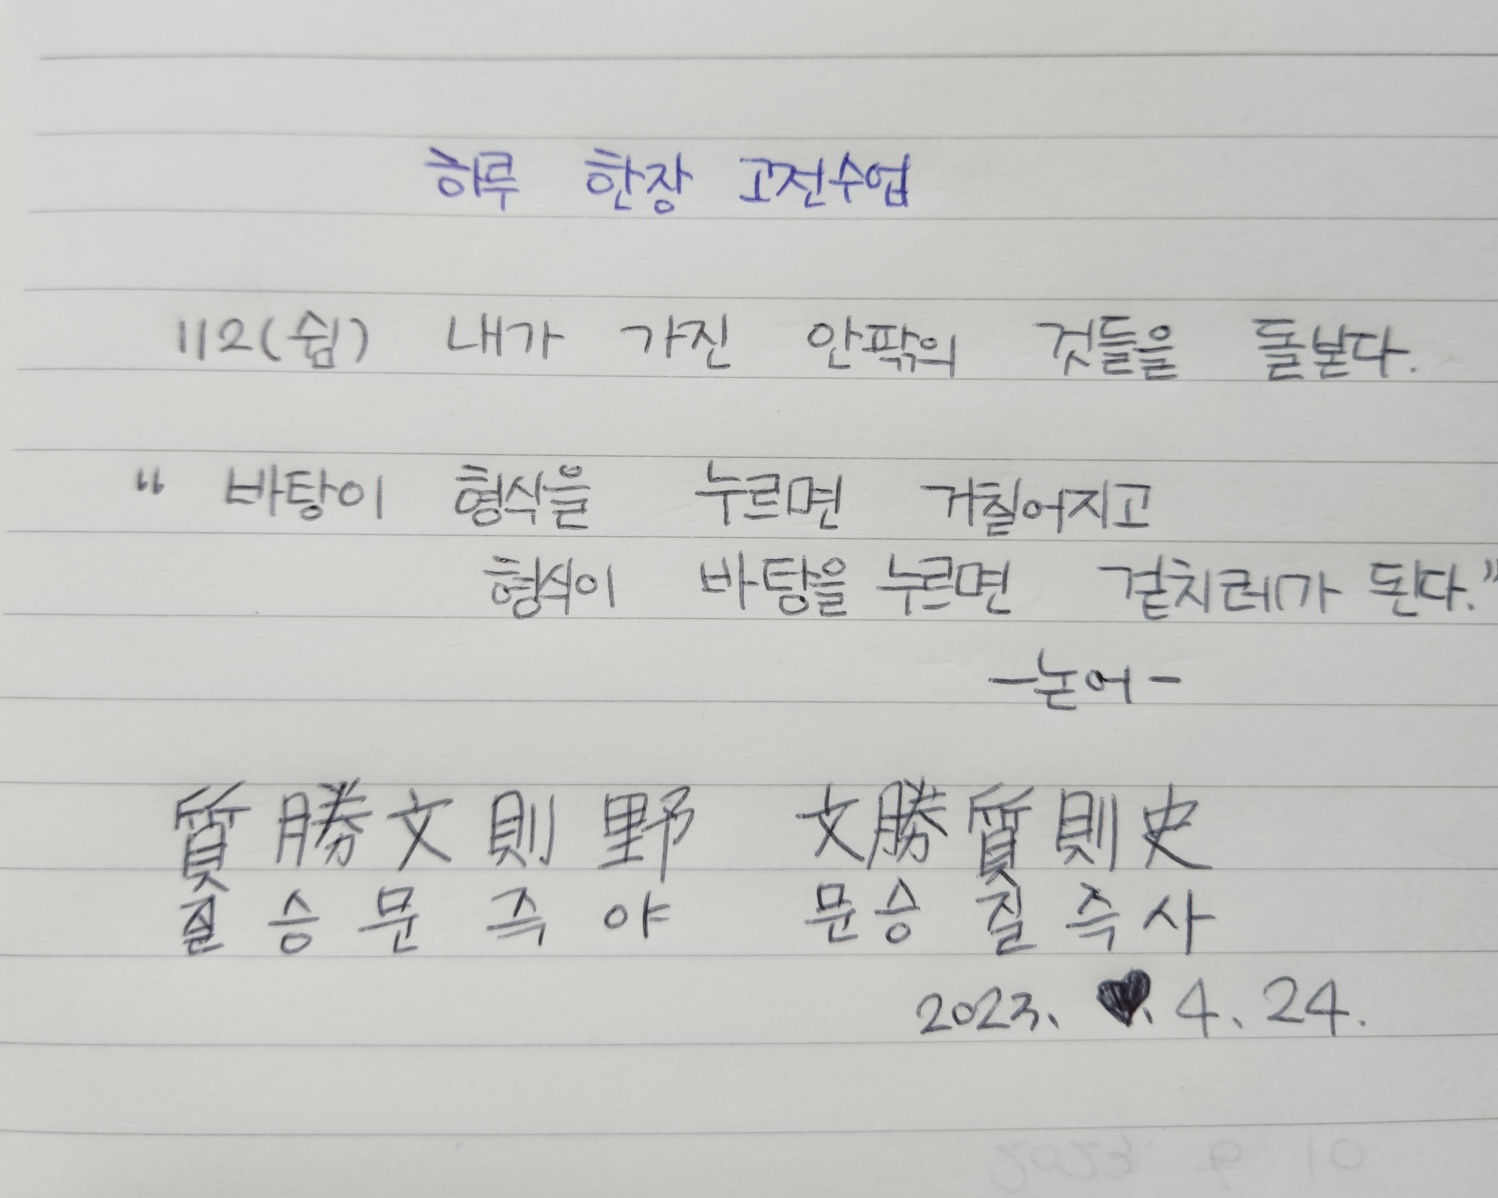 하루 한장 고전수업
112(쉼) 내가 가진 안팎의 것들을 돌본다.
“ 바탕이 형식을 누르면 거칠어지고
형식이 바탕을 누르면 겉치레가 된다.”
-논어-
質勝文則野 文勝質則史
질승문즉야 문승질즉사
2023. ♥. 4. 24.